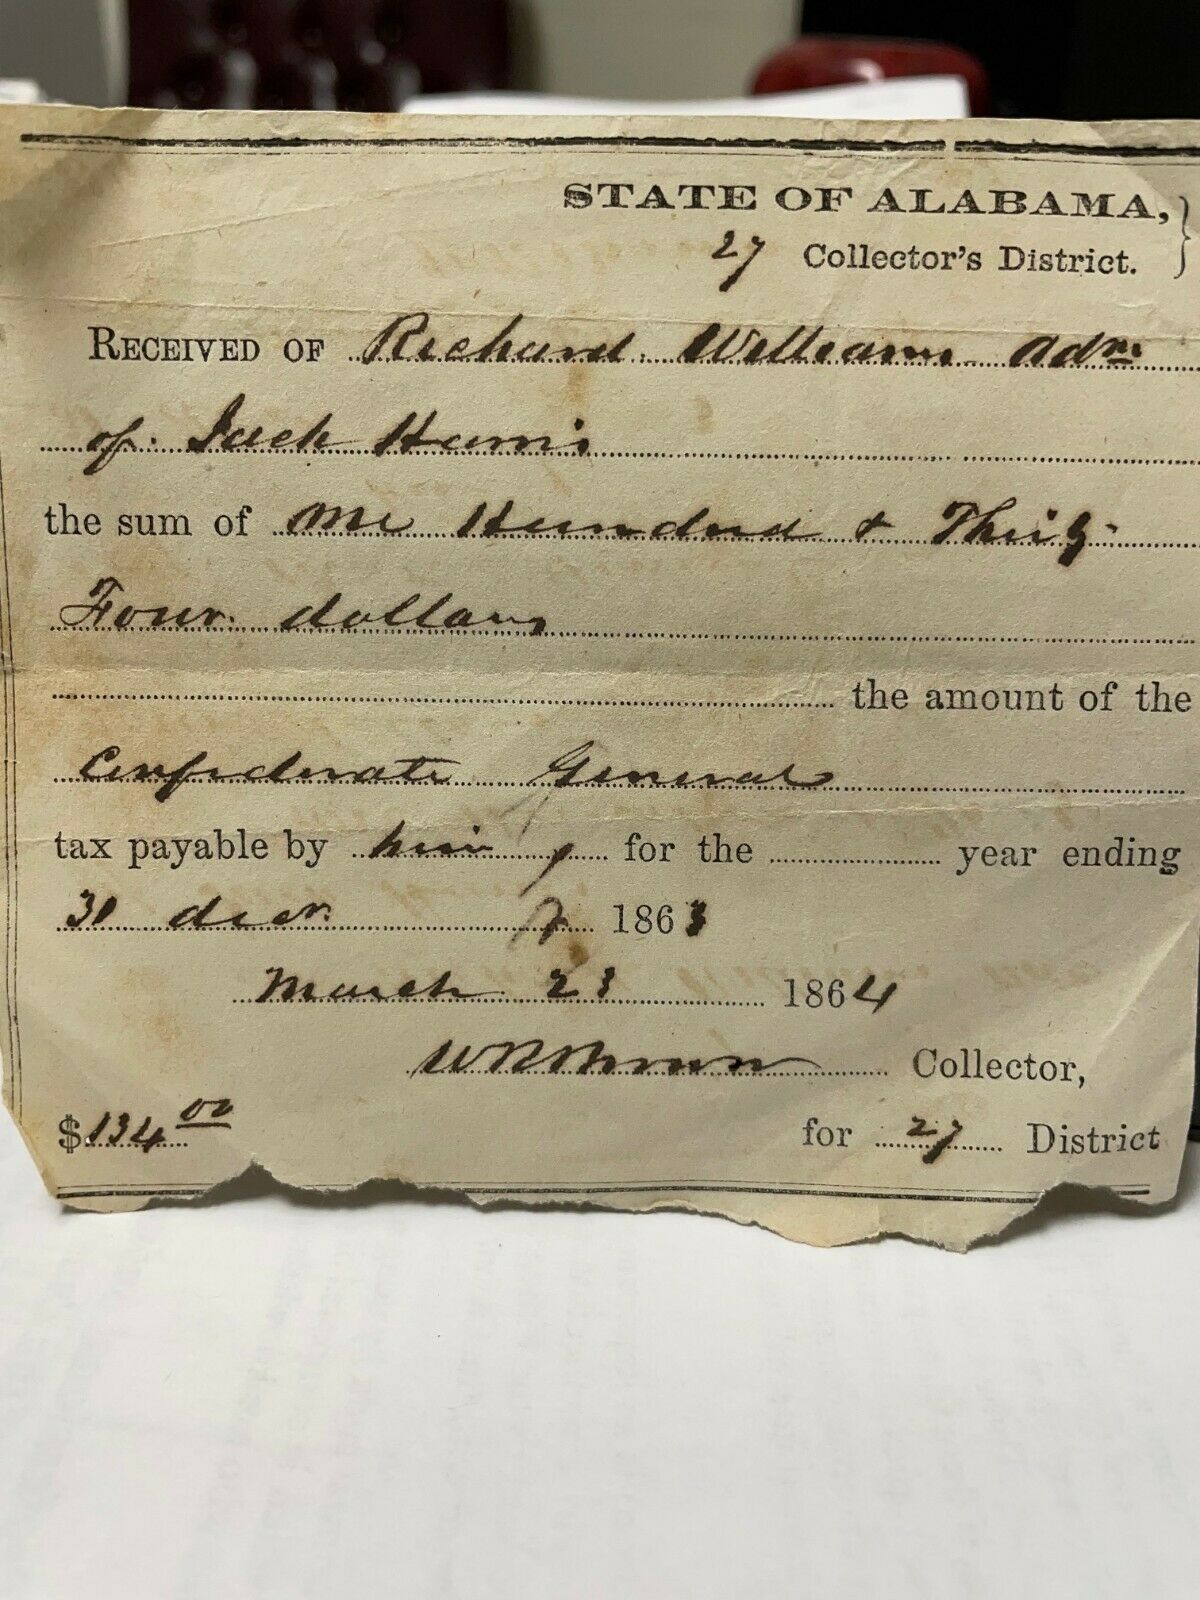 STATE OF ALABAMA,
27 Collector's District.
RECEIVED OF Richard Williams Adm
of Jack Harris
the sum of One Hundred & Thirty
Four dollars
the amount of the
Confederate General
tax payable by him for the year ending
31 decr. 1863
March 23 1864
Collector,
$134.00 for 27 District